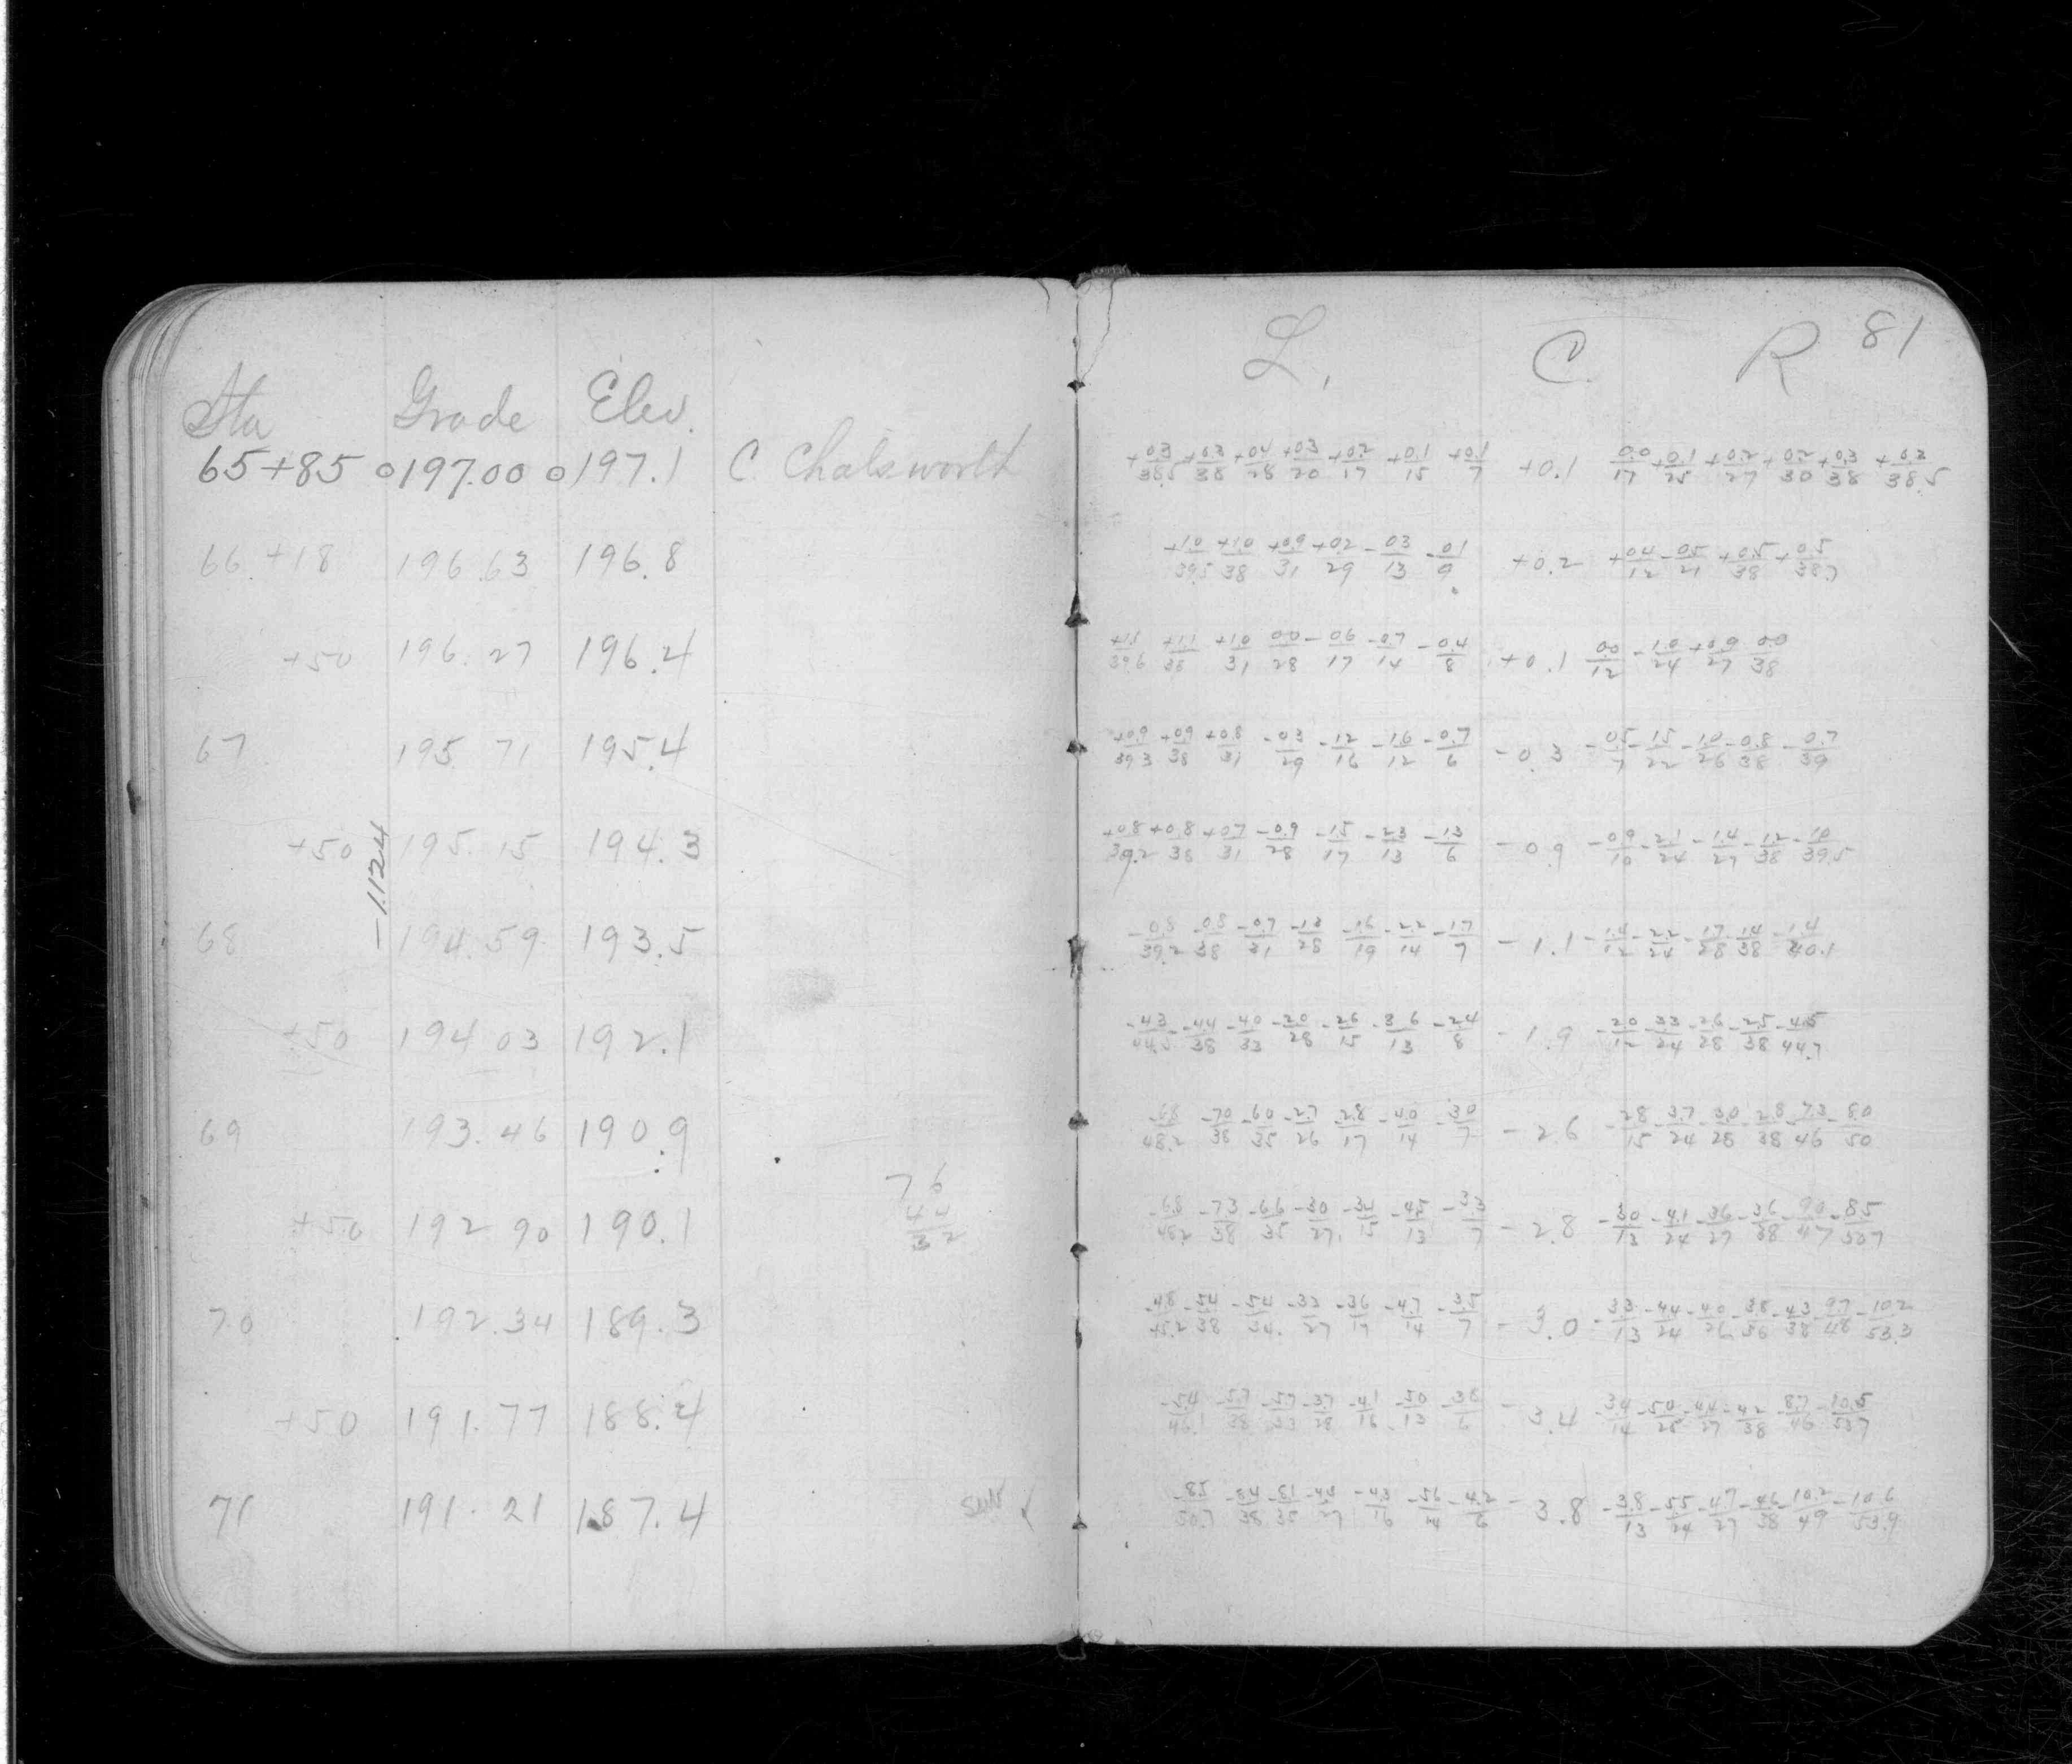 Sta Grade Elev.
65+85 197.00 197.1 C Chatsworth
66 +18 196.63 196.8
+50 196.27 196.4
67 195 71 195.4
+50 195.15 194.3
-1.124
68 194.59 193.5
+50 194 03 192.1
69 193.46 190.9
76
44
32
+50 192 90 190.1
70 192.34 189.3
+50 191.77 188.4
71 191.21 187.4
L. C. R 81
+0.3/38.5 +0.3/38 +04/28 +03/20 +0.2/17 +0.1/15 +0.1/7 +0.1 0.0/17 +0.1/25 +0.2/27 +0.2/30 +0.3/38 +0.3/38.5
+10/39.5 +1.0/38 +0.9/31 +02/29 -03/13 -01/9 +0.2 +04/12 -05/21 +0.5/38 +0.5/38.7
+1.1/38 +10/31 00/28 -06/17 -0.7/14 -0.4/8 +0.1 00/12 -1.0/24 +0.9/27 0.0/38
+0.9/39 3 +09/38 +0.8/31 -03/29 -12/16 -16/12 -0.7/6 -0.3 -0.5/7 -15/22 -10/26 -0.8/38 -0.7/39
+0.8/39.2 +0.8/38 +07/31 -0.9/28 -1.5/17 -23/13 -13/6 -0.9 -09/10 -2.1/24 -1.4/27 -1.2/38 -10/39.5
-0.8/39.2 -0.8/38 -0.7/31 -13/28 -1.6/19 -2.2/14 -1.7/7 -1.1 -1.4/12 -2.2/24 -17/28 -14/38 -1.4/40.1
-44/38 -40/33 -20/28 -26/15 -3 6/13 -24/8 -1.9 -20/12 -33/24 -26/28 -25/38 -4.5/44.7
-68/48.2 -70/38 -60/35 -2.7/26 -2.8/17 -40/14 -30/7 -2.6 -28/15 -3.7/24 -30/28 -2.8/38 -7.3/46 -80/50
-6.8/48.2 -73/38 -66/35 -30/27 -45/13 -3.3/7 -2.8 -30/13 -4.1/24 -36/27 -36/38 -90/47 -85/507
-48/45.2 -54/38 -54/34 -32/27 -36/17 -4.7/14 -3.5/7 -3.0 -33/13 -44/24 -40/26 -38/36 -43/38 -9.7/48 -10.2/53.3
-54/46.1 -57/38 -57/33 -37/28 -41/16 -50/13 -38/6 -3.4 -34/14 -50/25 -44/27 -42/38 -8.7/46 -10.5/537
-85/50.7 -84/38 -81/35 -44/27 -43/16 -56/14 -4.2/6 -3.8 -3.8/13 -55/24 -4.7/27 -46/38 -10.2/49 -10.6/53.9